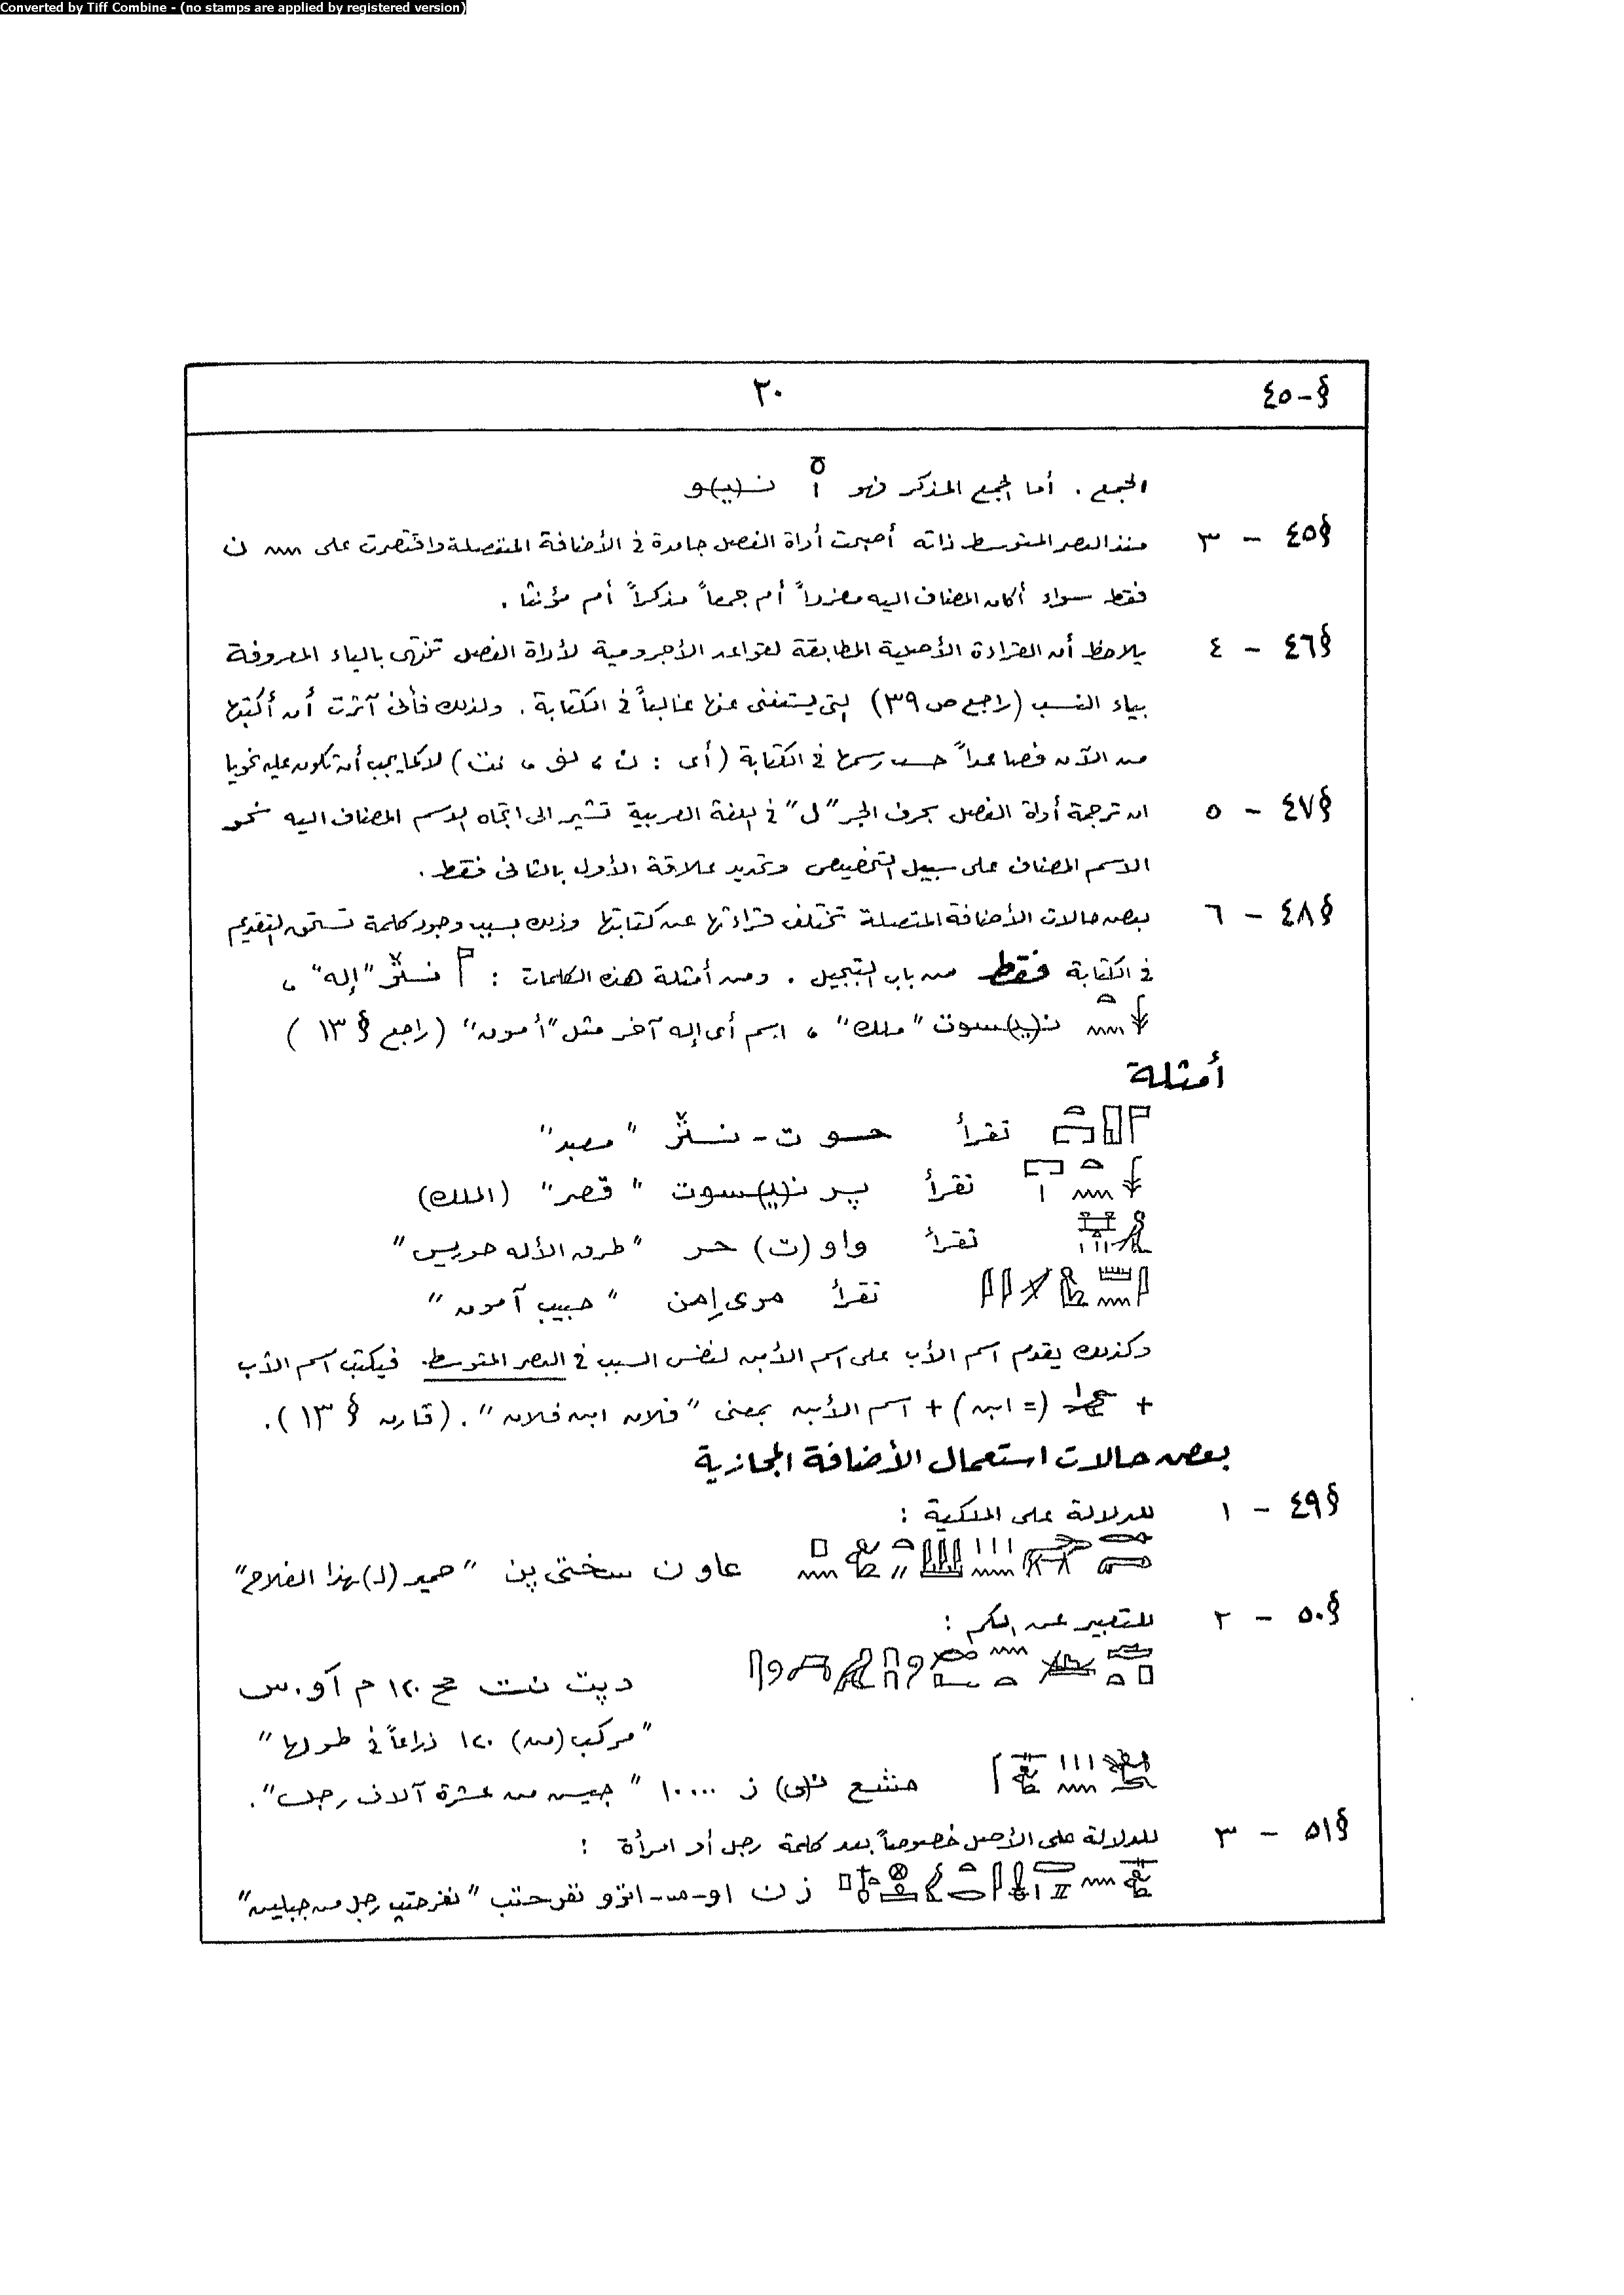 Converted by Tiff Combine - (no stamps are applied by registered version)
§-٤٥ ٣٠
الجمع . أما الجمع المذكر فهو ن(ي)و
§٤٥ - ٣ منذ العصر المتوسط ذاته أصبحت أداة الفصل جامدة في الأضافة المنفصلة واقتصرت على ن
فقط سواء أكان المضاف اليه مفرداً أم جمعاً مذكراً أم مؤنثا .
§٤٦ - ٤ يلاحظ أن القراءة الأصلية المطابقة لقواعد الأجرومية لأداة الفصل تنتهى بالياء المعروفة
بياء النسب (راجع ص ٣٩) التى يستغنى عنها غالباً في الكتابة . ولذلك فأنى آثرت أن أكتبها
من الآن فصاعداً حسب رسمها في الكتابة (أى : ن ، نو ، نت) لا كما يجب أن تكون عليه نحويا
§٤٧ - ٥ ان ترجمة أداة الفصل بحرف الجر "ل" في اللغة العربية تشير الى اتجاه الاسم المضاف اليه نحو
الاسم المضاف على سبيل التخصيص وتحديد علاقة الأول بالثانى فقط .
§٤٨ - ٦ بعض حالات الأضافة المتصلة تختلف قراءتها عن كتابتها وذلك بسبب وجود كلمة تستحق التقديم
في الكتابة فقط من باب التبجيل . ومن أمثلة هذه الكلمات : نثر "إله" ،
ن(ي)سوت "ملك" ، اسم أى إله آخر مثل "أمون" (راجع § ١٣ )
أمثلة
تقرأ حوت - نثر "معبد"
تقرأ پر ن(ي)سوت "قصر" (الملك)
تقرأ واو(ت) حر "طرق الأله حوريس"
تقرأ مرى إمن "حبيب آمون"
وكذلك يقدم اسم الأب على اسم الأبن لنفس السبب في العصر المتوسط. فيكتب اسم الأب
+ (= ابن) + اسم الأبن بمعنى "فلان ابن فلان" . (قارن § ١٣ ) .
بعض حالات استعمال الأضافة المجازية
§٤٩ - ١ للدلالة على الملكية :
عاو ن سختى پن "حمير (لـ)هذا الفلاح"
§٥٠ - ٢ للتعبير عن الكم :
دپت نت مح ١٢٠ م آو.س
"مركب (من) ١٢٠ ذراعاً في طولها"
مشع ن(ى) ز ١٠٠٠٠ "جيش من عشرة آلاف رجل" .
§٥١ - ٣ للدلالة على الأصل خصوصاً بعد كلمة رجل أو امرأة :
ز ن نفرحتپ "نفرحتپ رجل من جبلين"